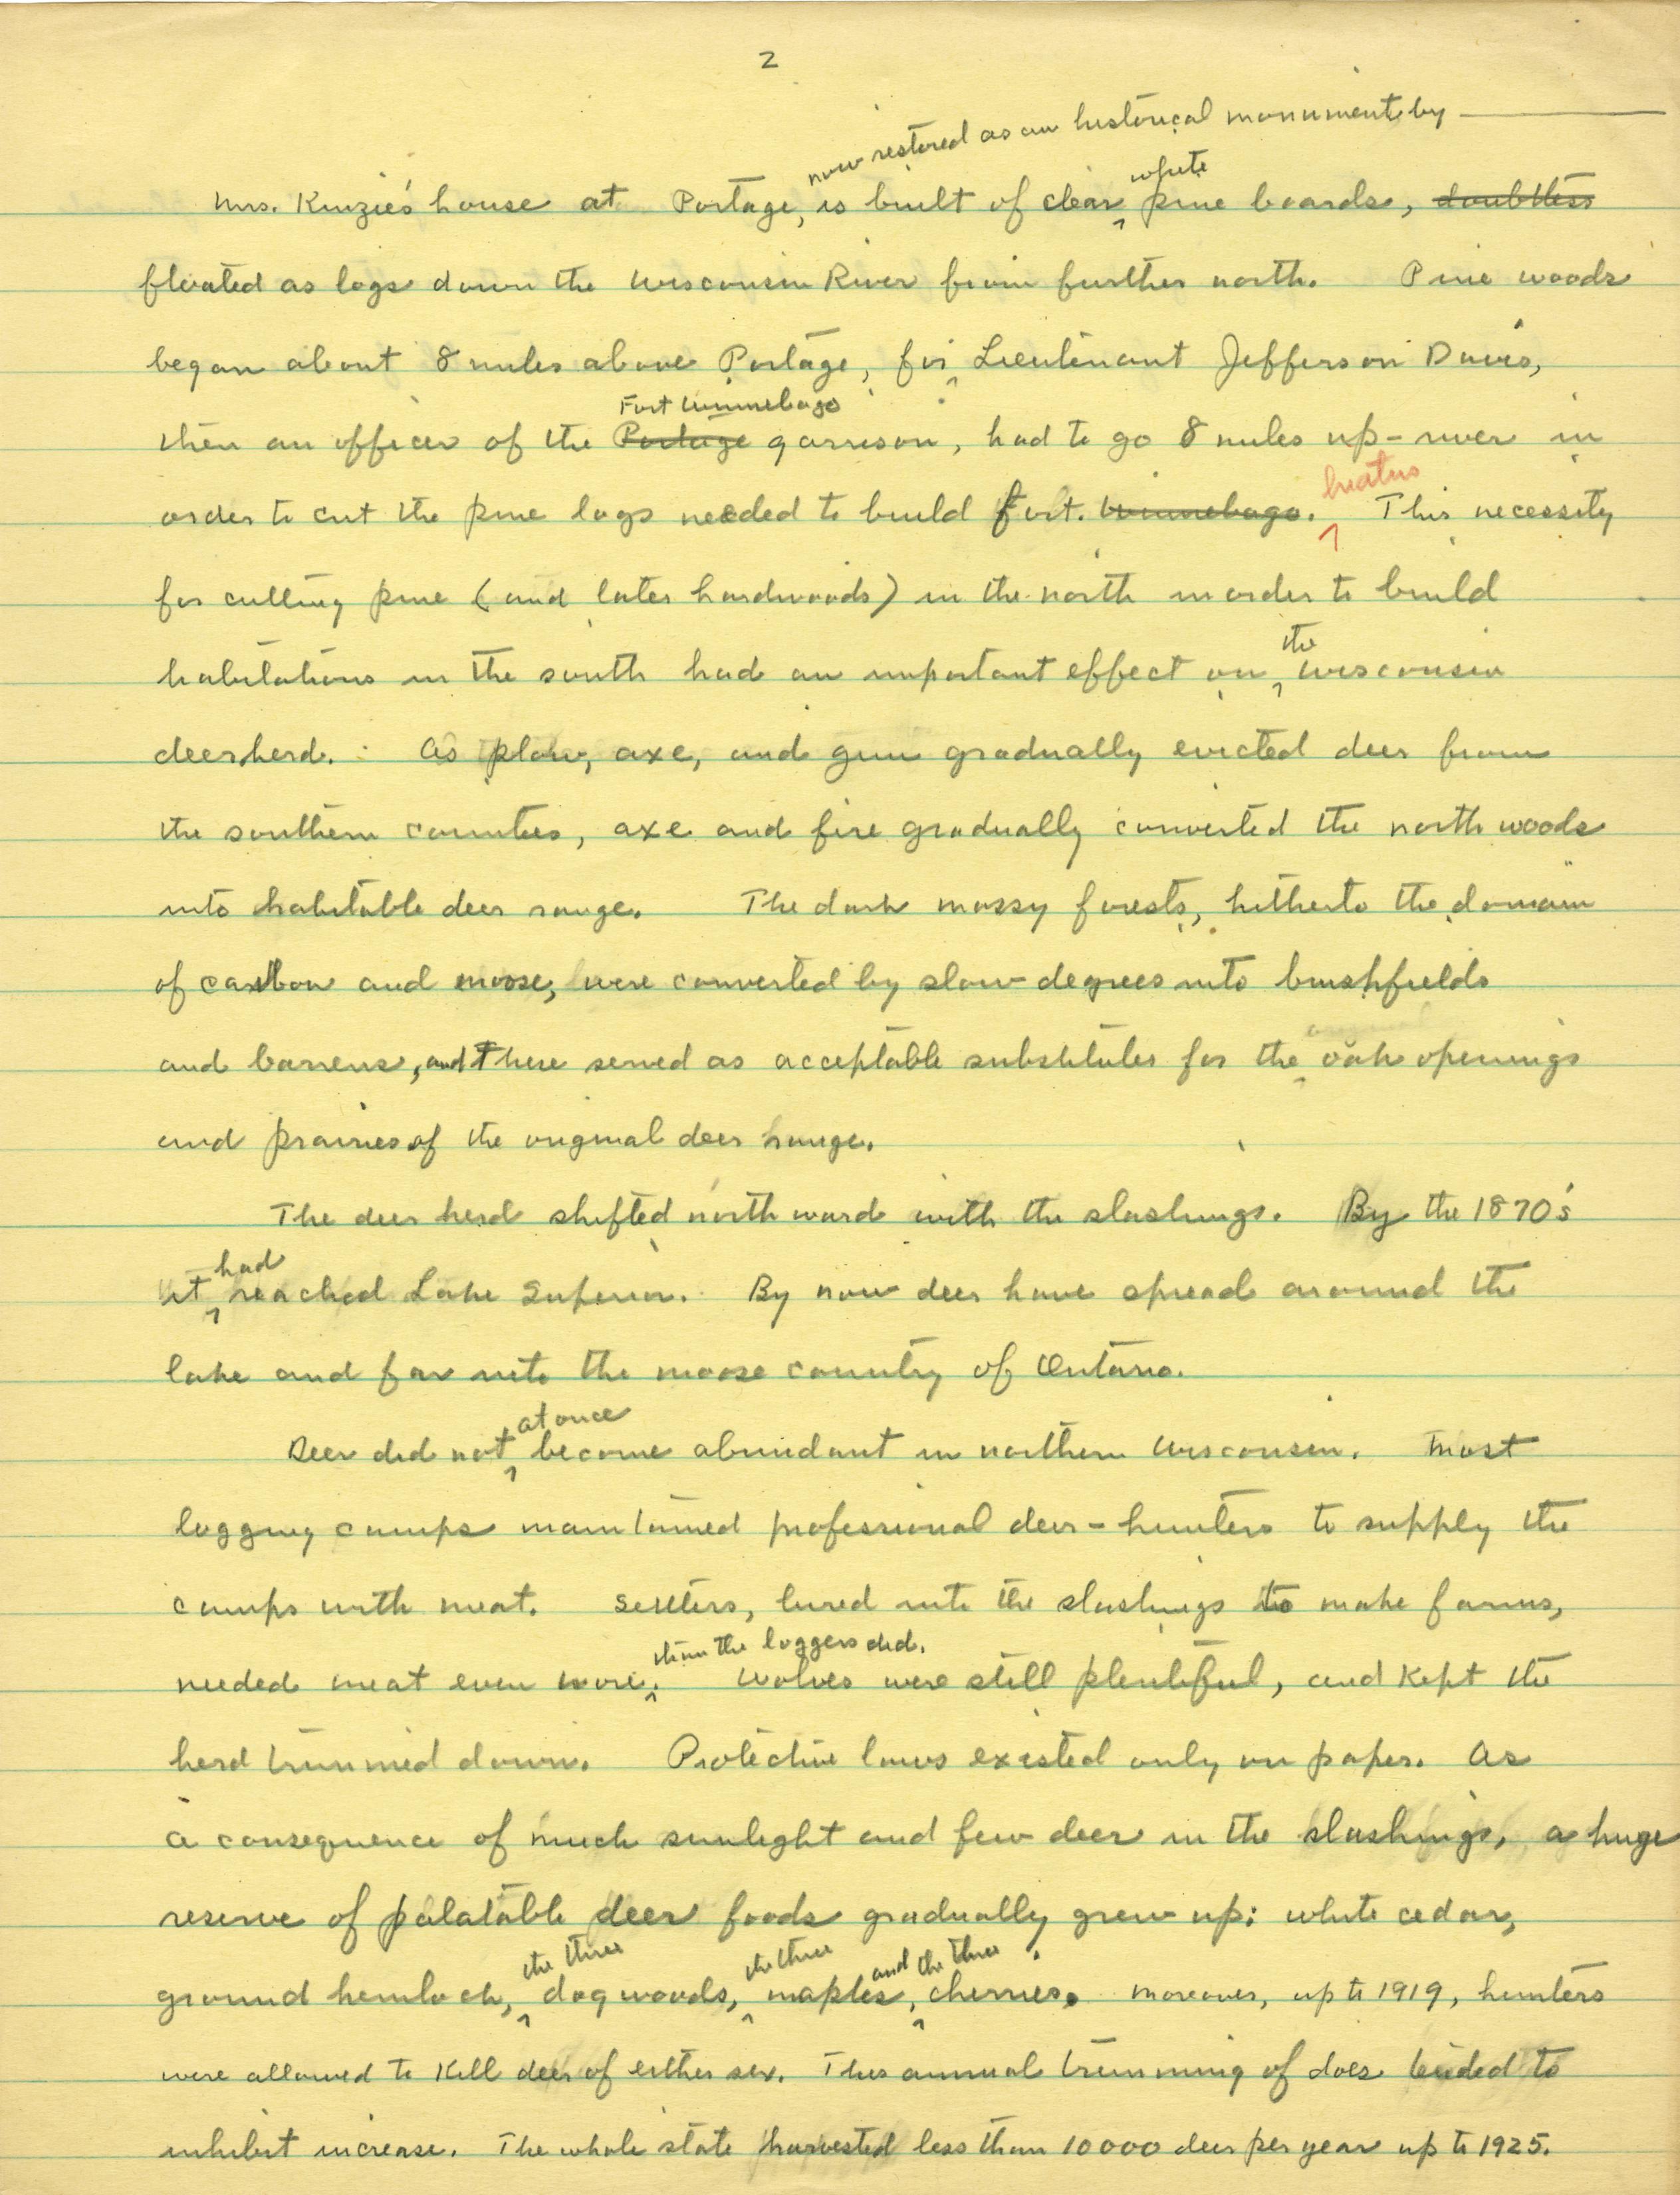 2
now restored as an historical monument by
white
Mrs. Kinzie's house at Portage, is built of clear pine boards, doubtless
floated as logs down the Wisconsin River from further north. Pine woods
began about 8 miles above Portage, for Lieutenant Jefferson Davis,
Fort Winnebago
then an officer of the Portage garrison, had to go 8 miles up-river in
hiatus
order to cut the pine logs needed to build fort. Winnebago. This necessity
for cutting pine (and later hardwoods) in the north in order to build
the
habitations in the south had an important effect on Wisconsin
deer herd. As plow, axe, and gun gradually evicted deer from
the southern counties, axe and fire gradually converted the north woods
into habitable deer range. The dark mossy forests, hitherto the domain
of caribou and moose, were converted by slow degrees into brushfields
original
and barrens, and these served as acceptable substitutes for the oak openings
and prairies of the original deer range.
The deer herd shifted northward with the slashings. By the 1870's
had
it reached Lake Superior. By now deer have spread around the
lake and far into the moose country of Ontario.
at once
Deer did not become abundant in northern Wisconsin. Most
logging camps maintained professional deer-hunters to supply the
camps with meat. Settlers, lured into the slashings to make farms,
than the loggers did.
needed meat even more. Wolves were still plentiful, and kept the
herd trimmed down. Protective laws existed only on paper. As
a consequence of much sunlight and few deer in the slashings, a huge
reserve of palatable deer foods gradually grew up: white cedar,
the three the three and the three
ground hemlock, dogwoods, maples, cherries. Moreover, up to 1919, hunters
were allowed to kill deer of either sex. This annual trimming of does tended to
inhibit increase. The whole state harvested less than 10000 deer per year up to 1925.